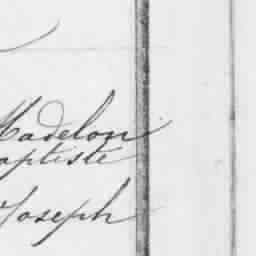 Madelon
aptiste
Joseph